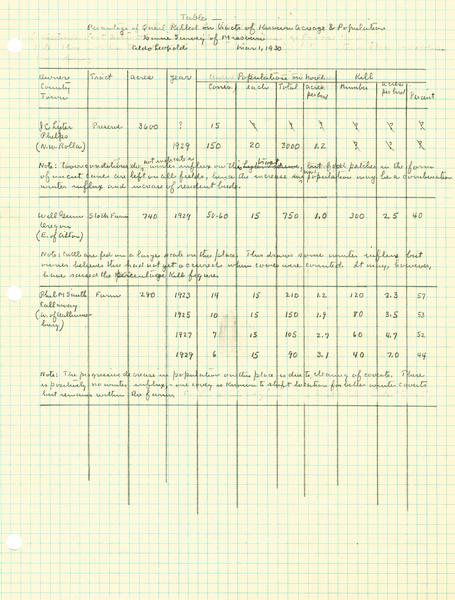 Table
Percentage of Quail Killed on Tracts of Known Acreage & Population
Game Survey of Missouri
Aldo Leopold Mar 1, 1930
Owner Tract acres year Population on Kill
County Covies each Total acres Number acres Percent
Town per bird per bird
J C Lister Preserve 3600 ? 15
Phelps
(N.W. Rolla) 1929 150 20 3000 1.2
Note: Town conditions do not indicate a
winter influx on this but food patches in the form
of uncut cane are left on all fields, hence the increase in population may be a combination
winter influx and increase of resident birds.
Will Stock Farm 740 1929 50-60 15 750 1.0 300 2.5 40
Oregon
(E. of Alton)
Note: Cattle are fed on a large scale on this place. This draws some winter influx but
owner believes this had not yet occurred when covies were counted. It may, however,
have raised the percentage kill figure.
Phil M Smith Farm 280 1923 14 15 210 1.2 120 2.3 57
Callaway 1925 10 15 150 1.9 80 3.5 53
(W. of Williamsburg)
1927 7 15 105 2.7 60 4.7 52
1929 6 15 90 3.1 40 7.0 44
Note: The progressive decrease in population on this place is due to cleaning of coverts. There
is positively no winter influx, - one covey is known to shift location for better winter coverts
but remains within the farm